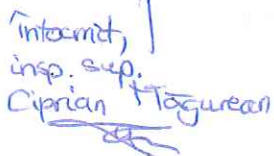 Întocmit,
insp. sup.
Ciprian Măgurean